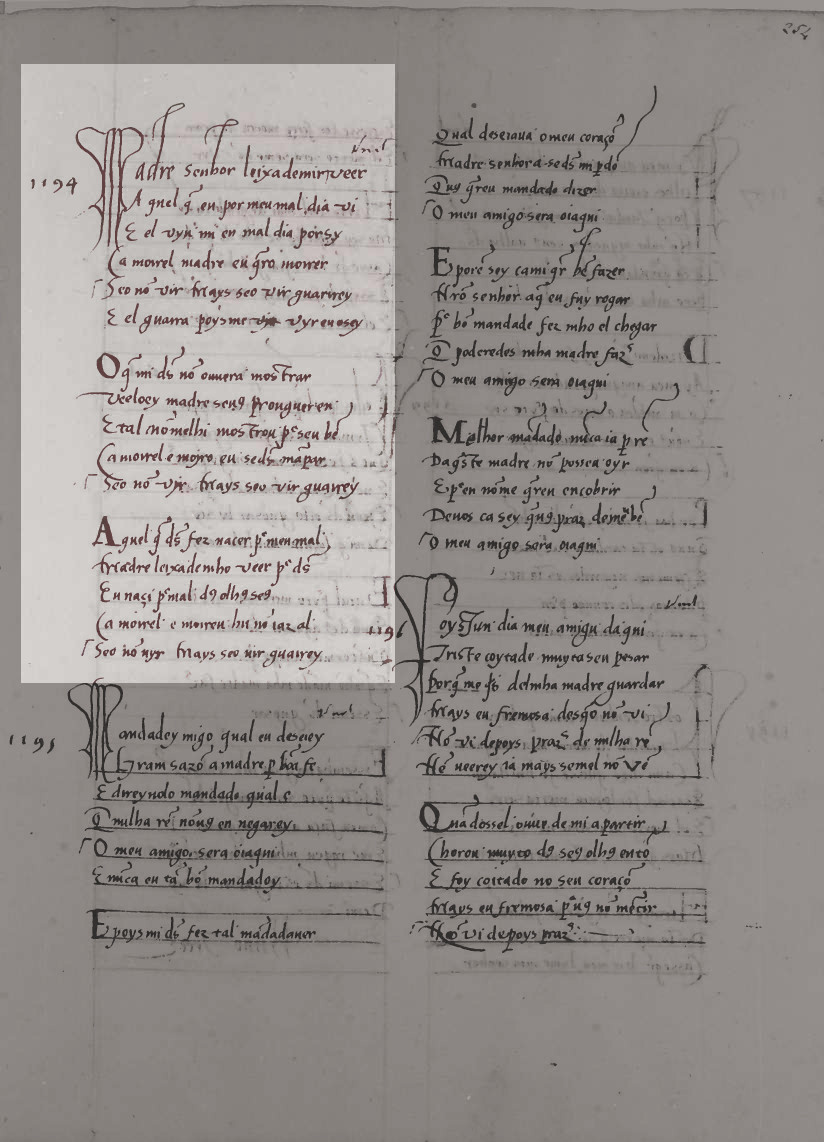 254
1194
Madre senhor leixademir veer
A quel q̃ eu por meu mal dia vi
E el vyu mi en mal dia por sy
Ca moirel madre eu q̃ro moirer
Seo nõ vir mays seo vir guarirey
E el guarra poys me vyr eu o sey
O q̃ mi ds̃ nõ ouuera mostrar
Veeloey madre
E tal nõ melhi mostrou seu bẽ
Ca moirel e moiro eu seds̃ mãpar
Seo nõ vir mays seo vir guarrey
A quel q̃ ds̃ fez nacer meu mal
Madre leixademho veer ds̃
Eu naçi mal d9 olhg seg
Ca moirel e moireu hu nõ iaz al
Seo nõ uyr mays seo uir guarrey
1195
Mandadey migo qual eu deseiey
Gram sazõ a madre
E direynolo mandado qual e
nõ en negarey
O meu amigo sera oiaqui
E nũca eu tã bõ mandadoy
E poys mi ds̃ fez tal mãdadauer
Qual deseiaua o meu coraçõ
Madre senhora seds̃ mi pdõ
Quy q̃reu mandado dizer
O meu amigo sera oiaqui
E porẽ sey cami q̃r bẽ fazer
Nrõ senhor aq̃ eu fuy rogar
bõ mandade fez mho el chegar
poderedes mha madre
O meu amigo sera oiaqui
Melhor mãdado nũca ia
Daq̃ste madre nõ possou oyr
E en nõme q̃reu encobrir
Deuos ca sey praz demeu bẽ
O meu amigo sera oiaqui
1196
Poys Jun dia meu amigu daqui
Triste coytade muytaseu pesar
Porq̃ me delmha madre guardar
Mays eu fremosa desq̃o nõ vi
Nõ vi depoys praz̃ de nulha rẽ
Nẽ ueerey ia mays semel nõ vẽ
Quãdossel ouue de mi a partir
Chorou muyto d9 seg olhg entõ
E foy coitado no seu coraçõ
Mays eu fremosa nõ mẽtir
Nõ vi depoys praz̃